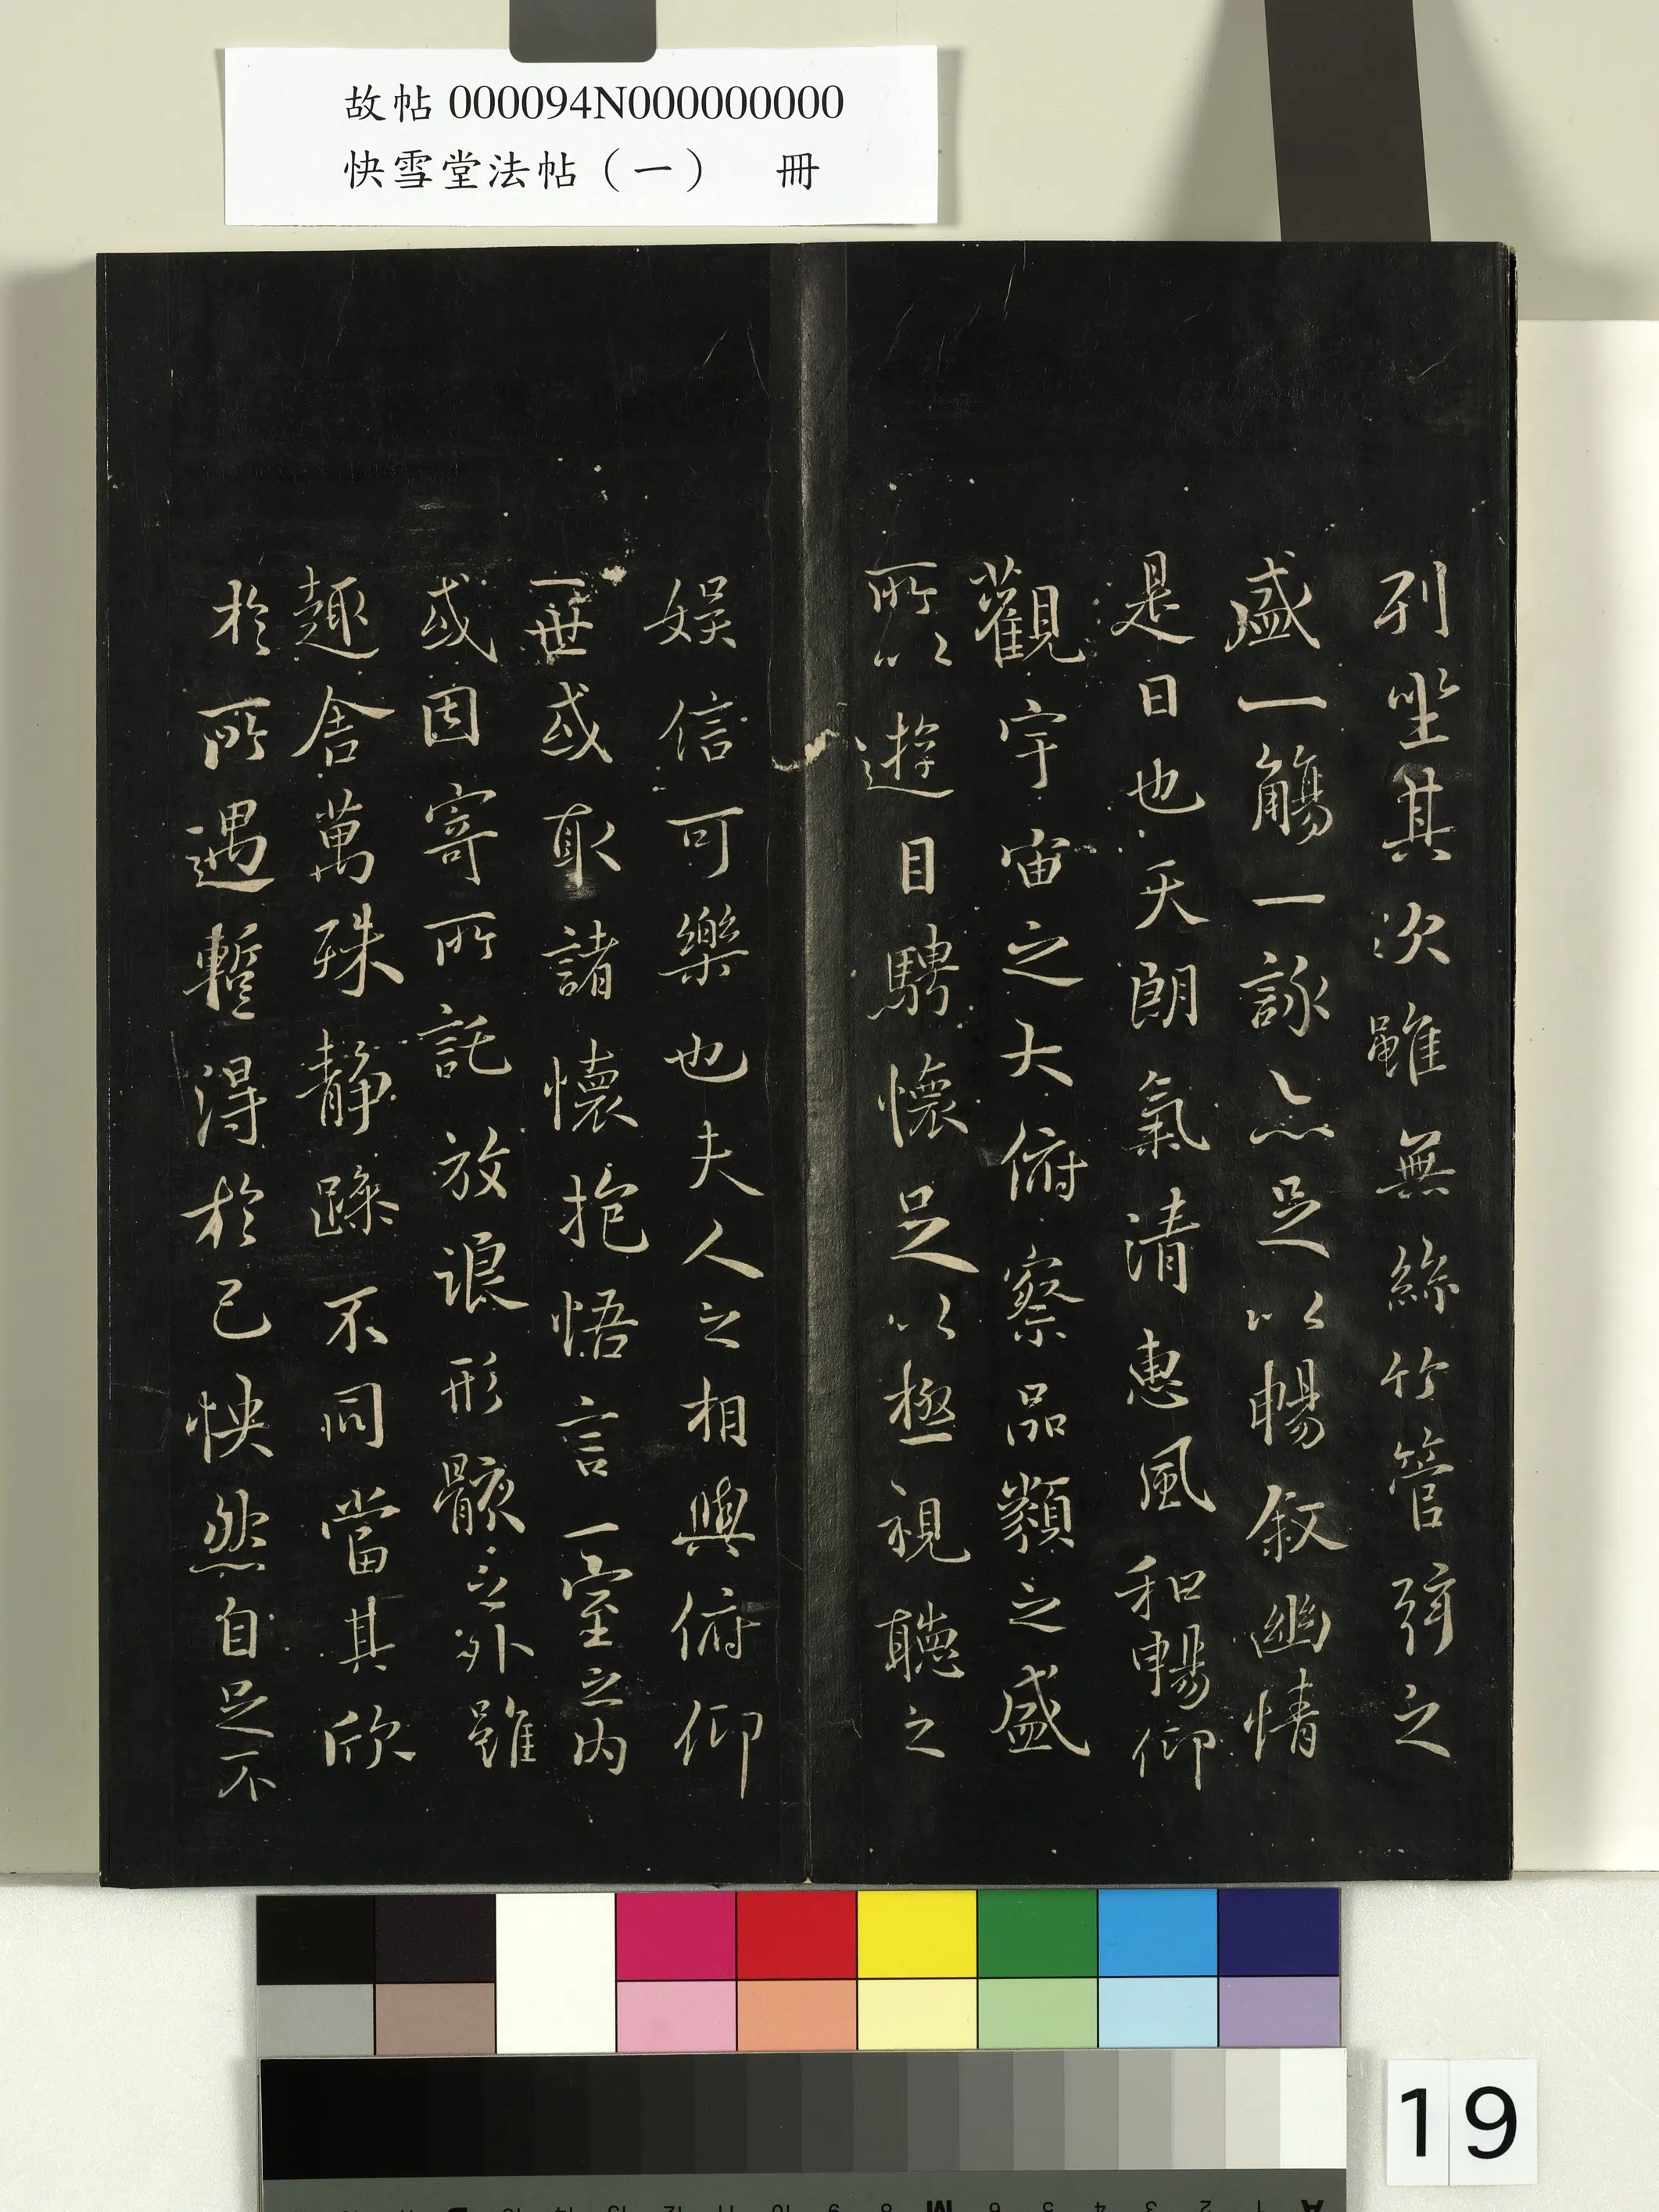 故帖 000094N000000000
快雪堂法帖（一） 冊
列坐其次雖無絲竹管弦之
盛一觴一詠亦足以暢敘幽情
是日也天朗氣清惠風和暢仰
觀宇宙之大俯察品類之盛
所以遊目騁懷足以極視聽之
娛信可樂也夫人之相與俯仰
一世或取諸懷抱悟言一室之內
或因寄所託放浪形骸之外雖
趣舍萬殊靜躁不同當其欣
於所遇暫得於己怏然自足不
19